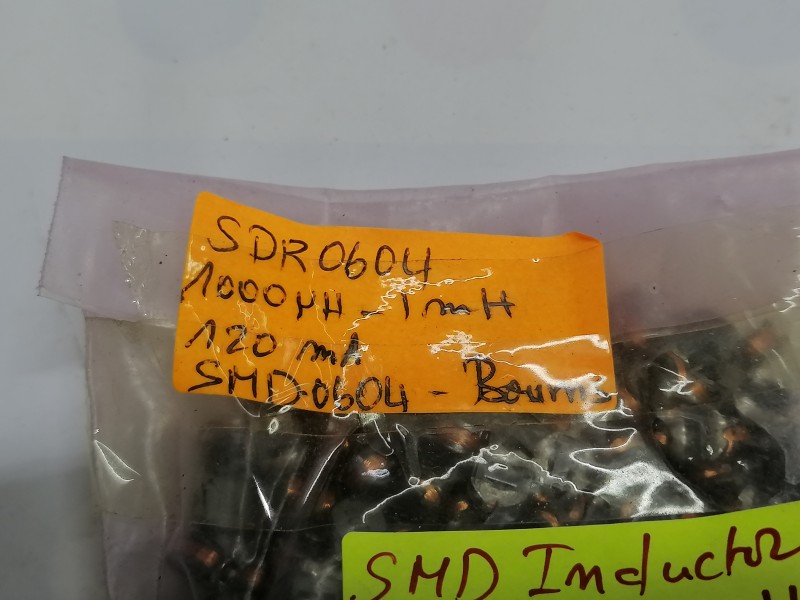 SDR0604
1000µH - 1mH
120 mA
SMD-0604 - Bourns
SMD Inductor